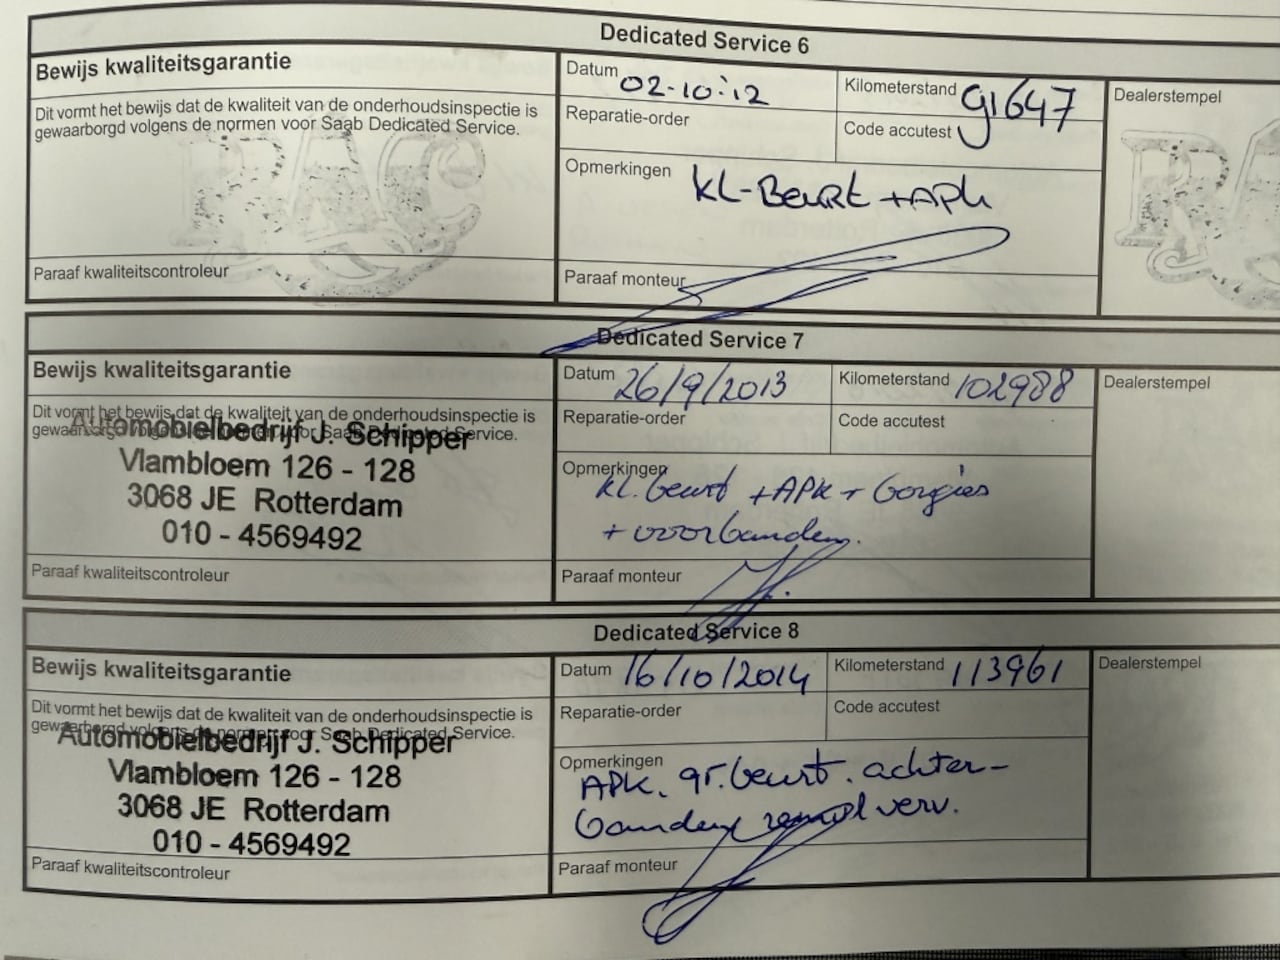 Dedicated Service 6
Bewijs kwaliteitsgarantie
Dit vormt het bewijs dat de kwaliteit van de onderhoudsinspectie is
gewaarborgd volgens de normen voor Saab Dedicated Service.
Paraaf kwaliteitscontroleur
Datum 02-10-12
Kilometerstand 91647
Reparatie-order
Code accutest
Opmerkingen KL-Beurt +APk
Paraaf monteur
Dealerstempel
Dedicated Service 7
Bewijs kwaliteitsgarantie
Dit vormt het bewijs dat de kwaliteit van de onderhoudsinspectie is
gewaarborgd volgens de normen voor Saab Dedicated Service.
Automobielbedrijf J. Schipper
Vlambloem 126 - 128
3068 JE Rotterdam
010 - 4569492
Paraaf kwaliteitscontroleur
Datum 26/9/2013
Kilometerstand 102988
Reparatie-order
Code accutest
Opmerkingen
kl. beurt +APK + bougies
+ voorbanden.
Paraaf monteur
Dealerstempel
Dedicated Service 8
Bewijs kwaliteitsgarantie
Dit vormt het bewijs dat de kwaliteit van de onderhoudsinspectie is
gewaarborgd volgens de normen voor Saab Dedicated Service.
Automobielbedrijf J. Schipper
Vlambloem 126 - 128
3068 JE Rotterdam
010 - 4569492
Paraaf kwaliteitscontroleur
Datum 16/10/2014
Kilometerstand 113961
Reparatie-order
Code accutest
Opmerkingen
APK. gr. beurt. achter-
banden verv.
Paraaf monteur
Dealerstempel